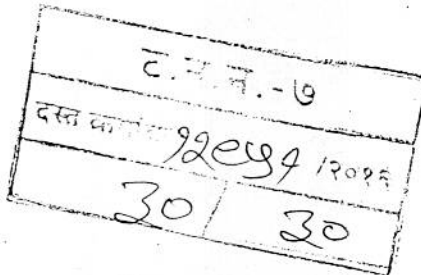 ट.न.न.-७
दस्त क्रमांक १२९५१ /२०१६
३० ३०